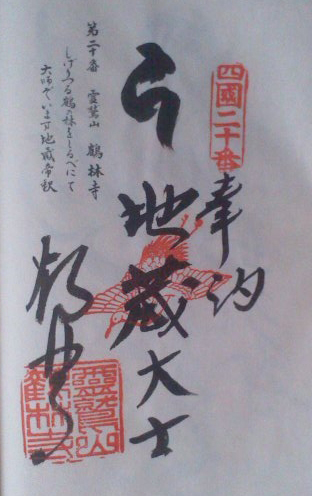 四國二十番
奉納
地蔵大士
靈鷲山
鶴林寺
第二十番　霊鷲山　鶴林寺
しげりつる鶴の林をしるべにて
大師ぞいます地蔵帝釈